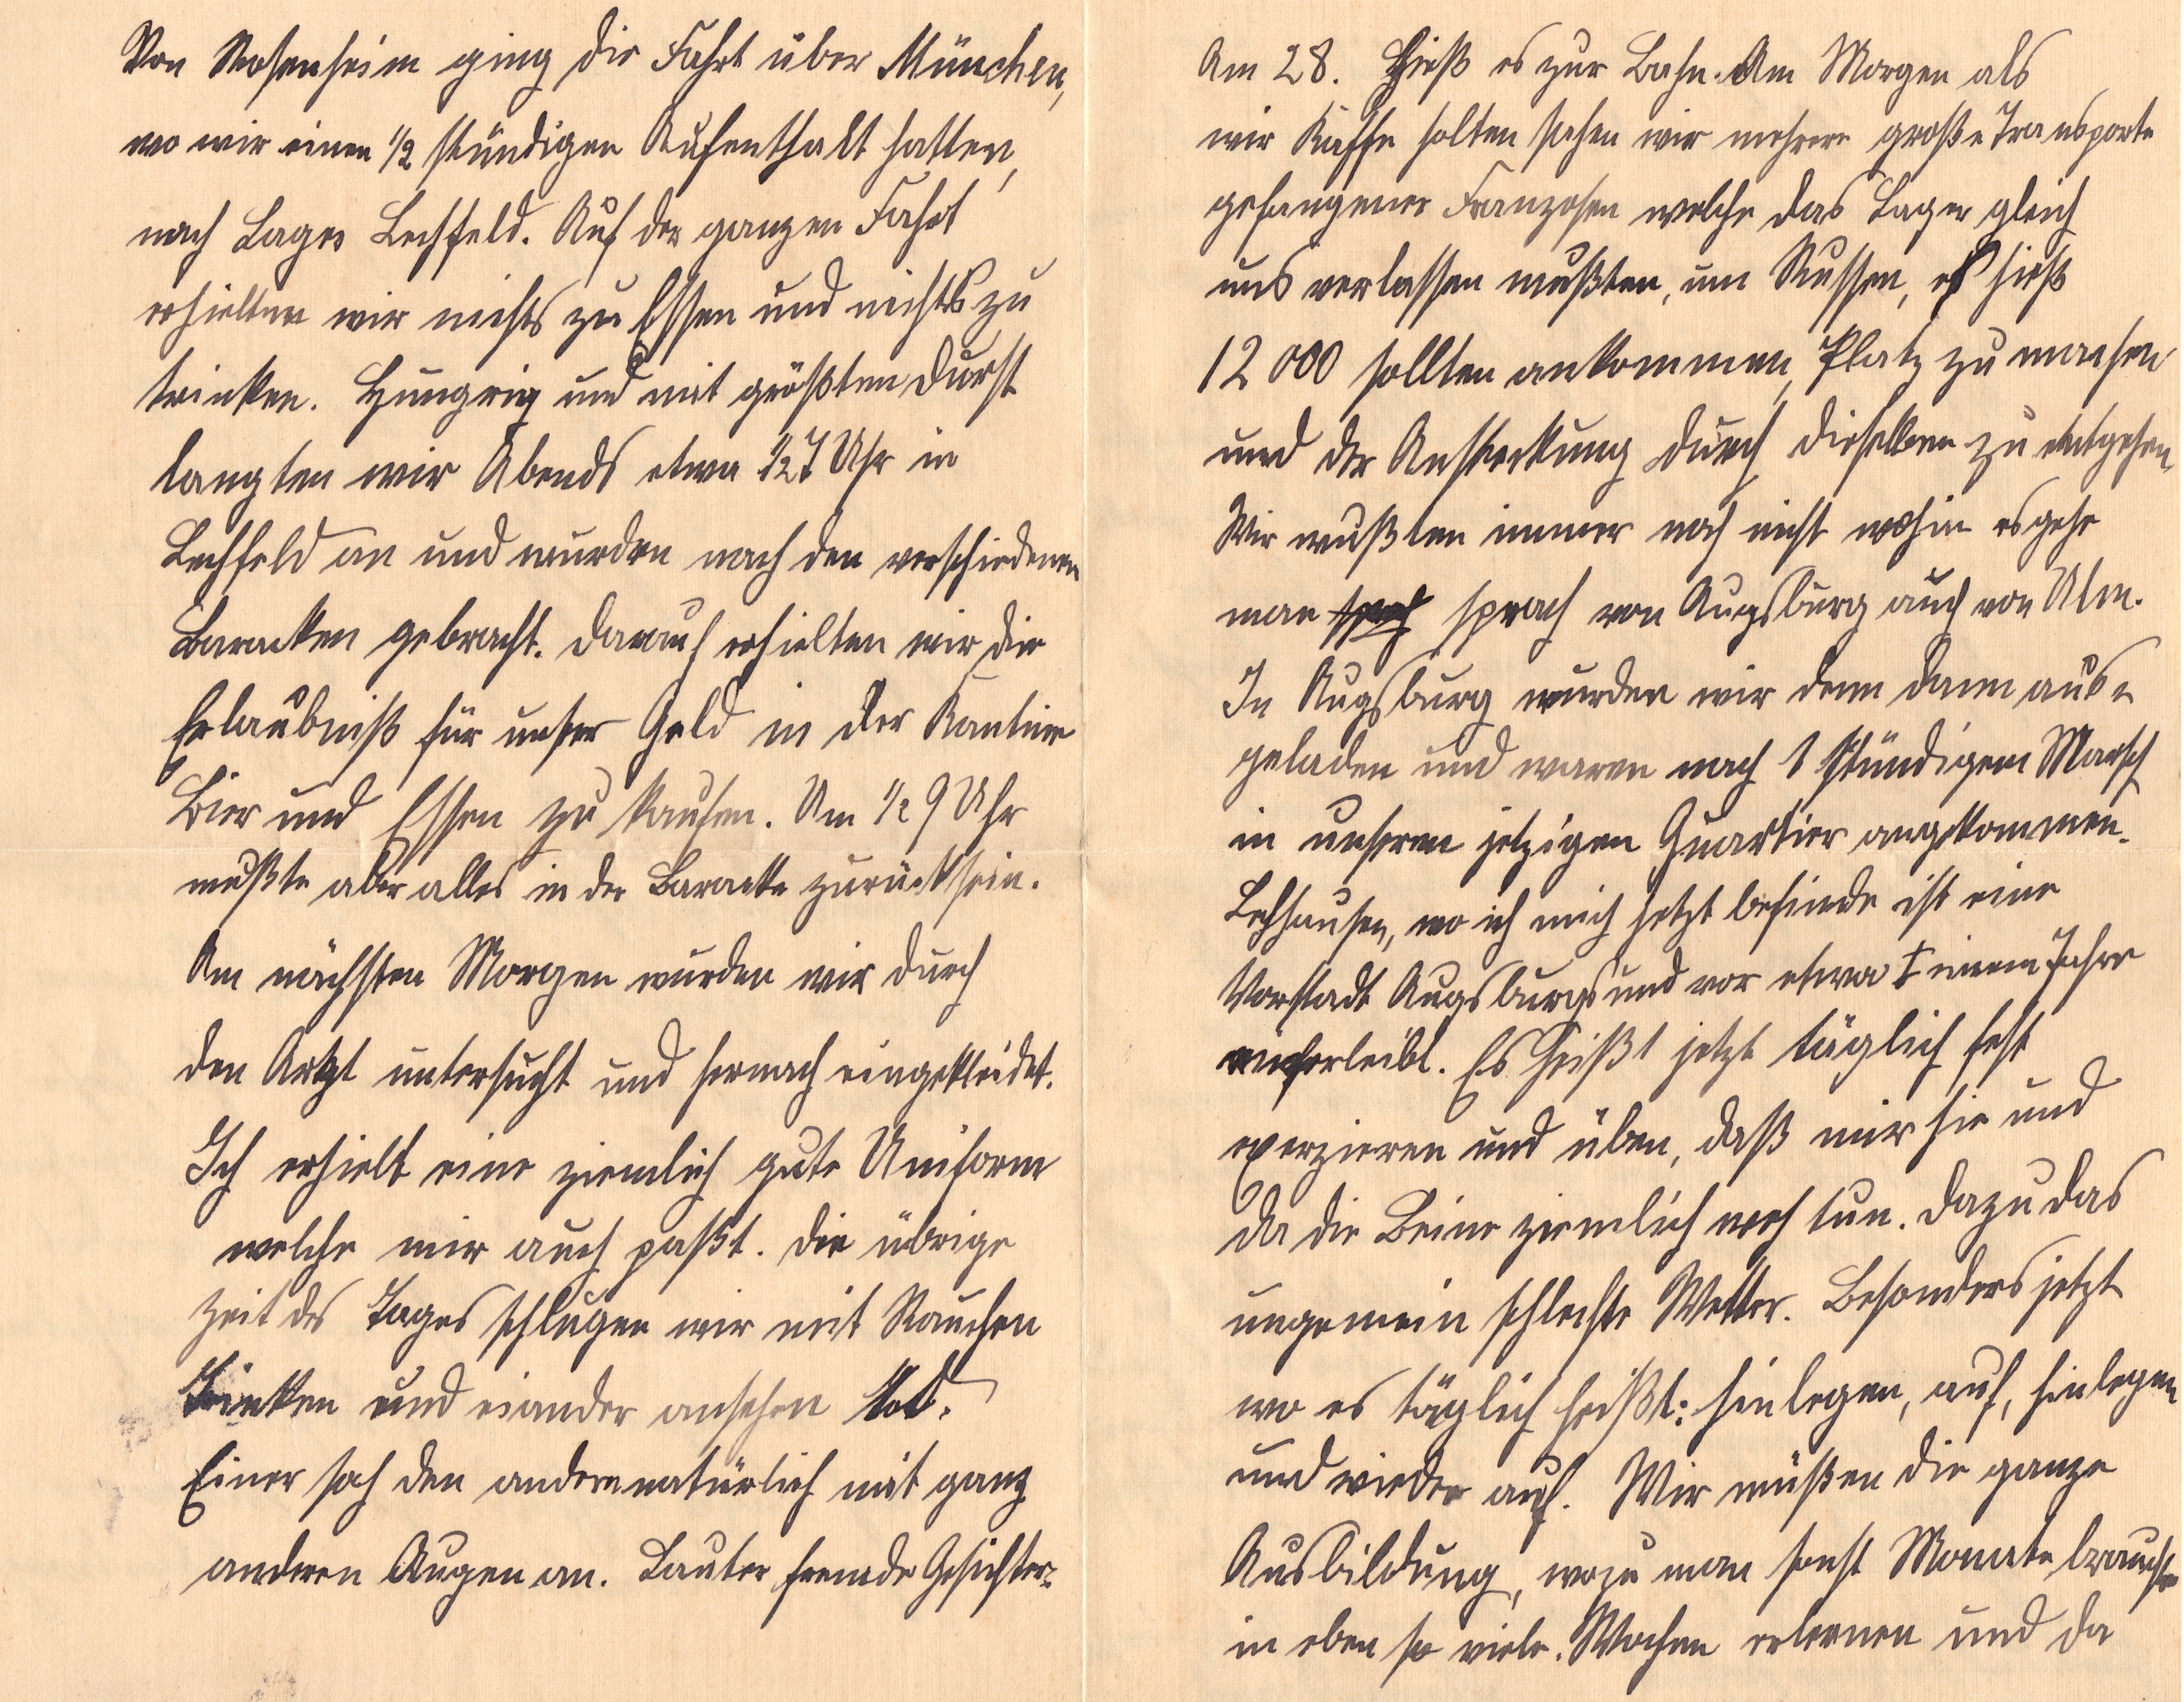 Von Rosenheim ging die Fahrt über München,
wo wir einen 1/2 stündigen Aufenthalt hatten,
nach Lager Lechfeld. Auf der ganzen Fahrt
erhielten wir nichts zu Essen und nichts zu
trinken. Hungrig und mit größten Durst
langten wir Abends etwa 1/2 7 Uhr in
Lechfeld an und wurden nach den verschiedenen
Baracken gebracht. Darauf erhielten wir die
Erlaubniß für unser Geld in der Kantine
Bier und Essen zu kaufen. Um 1/2 9 Uhr
mußte aber alles in der Baracke zurück sein.
Am nächsten Morgen wurden wir durch
den Artzt untersucht und hernach eingekleidet.
Ich erhielt eine ziemlich gute Uniform
welche mir auch paßt. Die übrige
Zeit des Tages schlugen wir mit Rauchen
Trinken und eiander ansehen tot.
Einer sah den andern natürlich mit ganz
anderen Augen an. Lauter fremde Gesichter.
Am 28. hieß es zur Bahn. Am Morgen als
wir Kaffe holten sahen wir mehrere große Transporte
gefangener Franzosen welche das Lager gleich
uns verlassen mußten, um Russen, es hieß
12 000 sollten ankommen, Platz zu machen
und der Ansteckung durch dieselben zu entgehen,
Wir wußten immer noch nicht wohin es gehe
man sprach von Augsburg auch von Ulm.
In Augsburg wurden wir denn dann aus-
geladen und waren nach 1 stündigem Marsch
in unserem jetzigen Quartier angekommen.
Lechhausen, wo ich mich jetzt befinde ist eine
Vorstadt Augsburgs und vor etwa einem Jahre
einverleibt. Es heißt jetzt täglich fest
exerzieren und üben, daß mir hie und
da die Beine ziemlich weh tun. Dazu das
ungemein schlechte Wetter. Besonders jetzt
wo es täglich heißt: hinlegen, auf, hinlegen
und wieder auf. Wir müßen die ganze
Ausbildung, wozu man sonst Monate brauchte
in eben so viele. Wochen erlernen und da